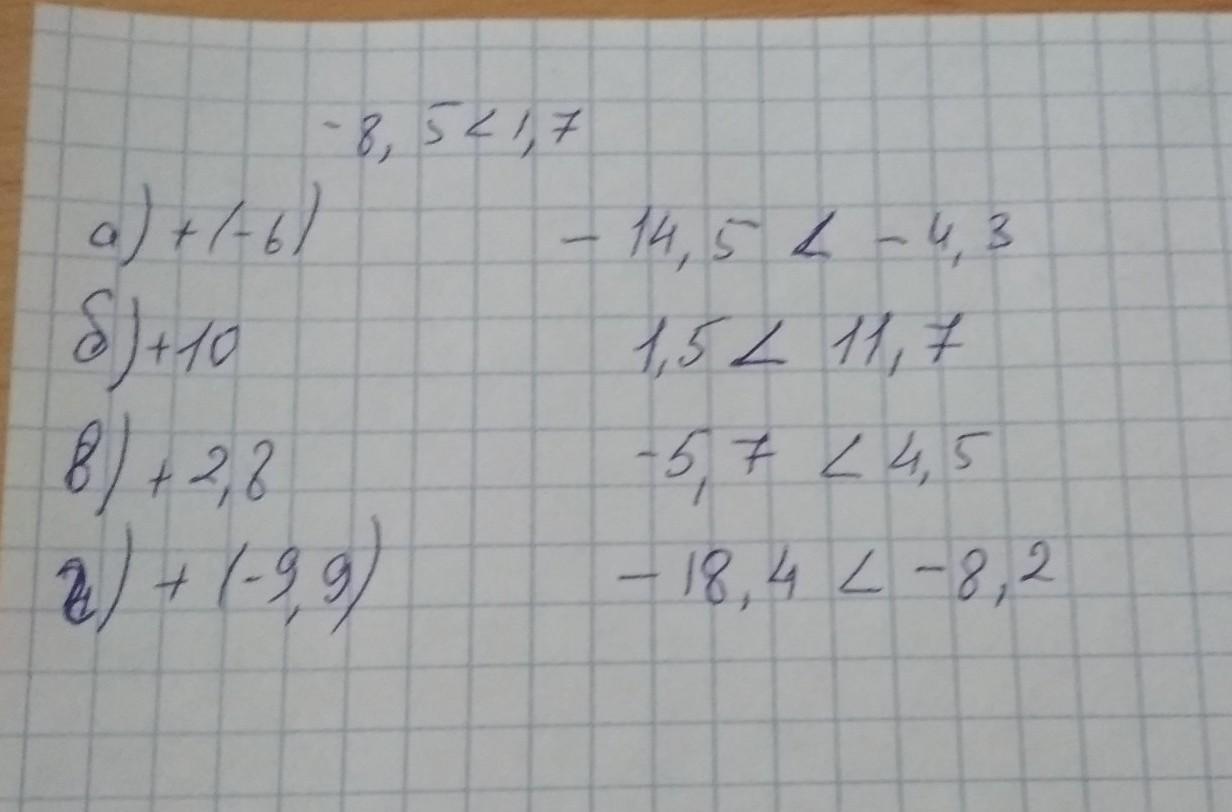 -8,5<1,7
а) +(-6) -14,5 < -4,3
б) +10 1,5 < 11,7
в) +2,8 -5,7 < 4,5
г) +(-9,9) -18,4 < -8,2